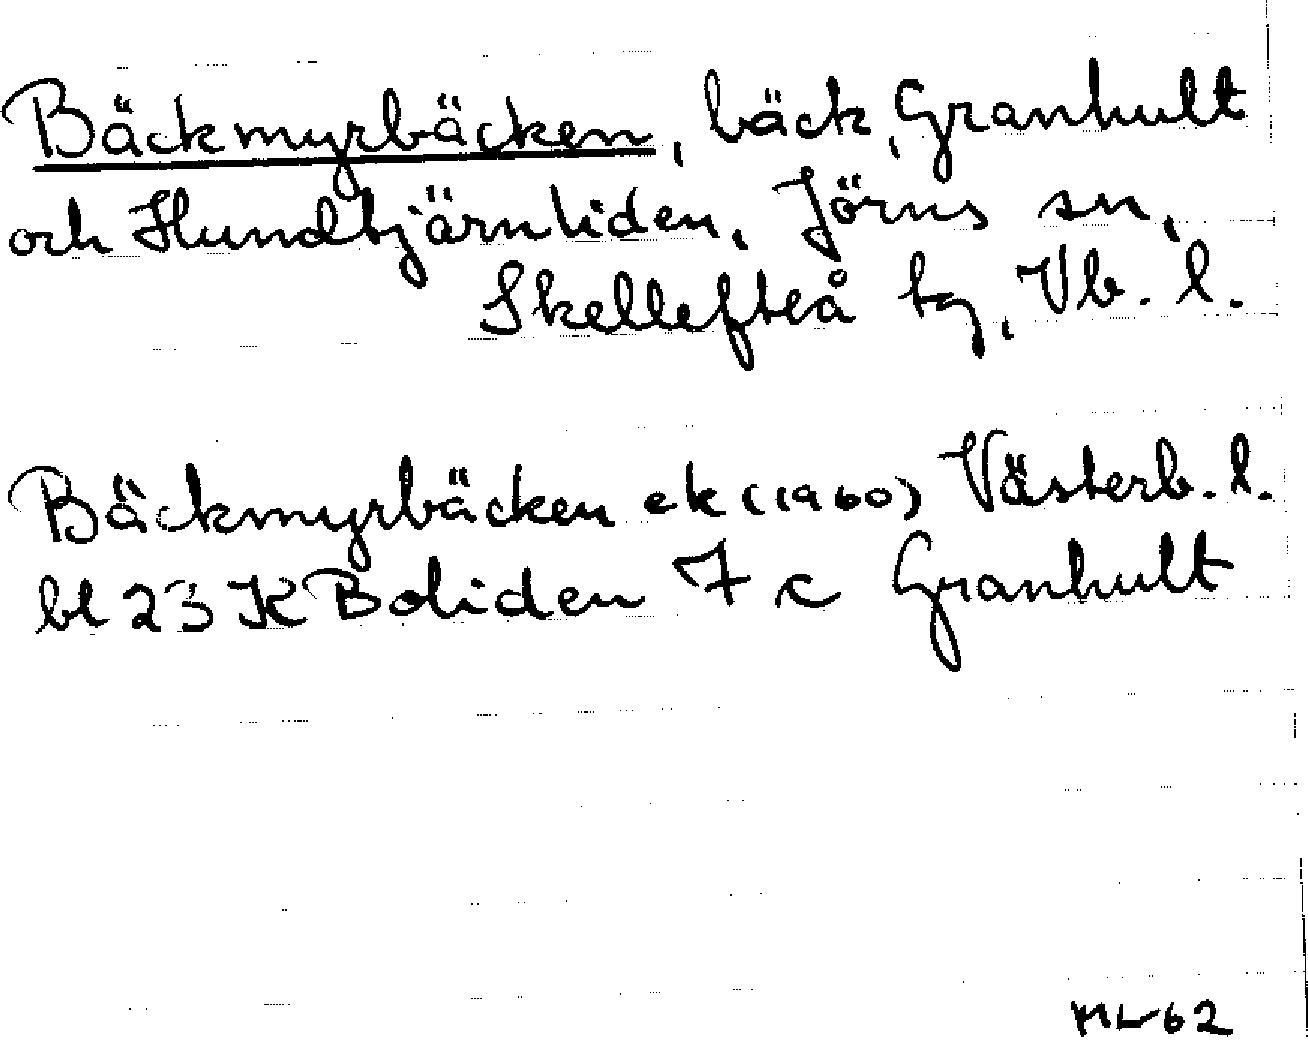 Bäckmyrbäcken, bäck, Granhult
och Hundtjärnliden, Jörns sn,
Skellefteå tg, Vb. l.
Bäckmyrbäcken ek (1960) Västerb. l.
bl 23 K Boliden 7 c Granhult
ML 62